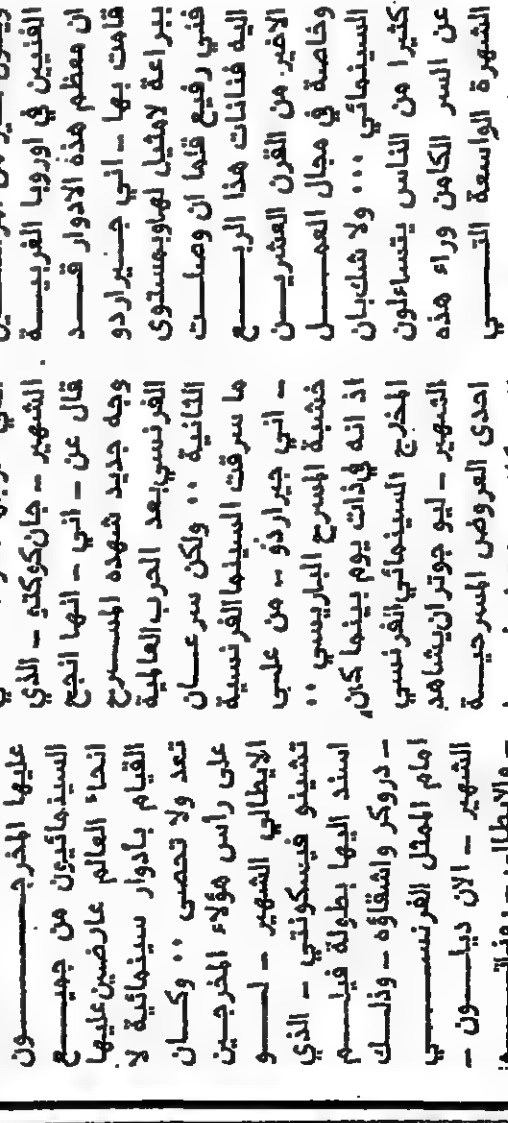 الفنيين في اوروبا الغربيـــة
ان معظم هذه الادوار قــــد
قامت بها - اني جــيراردو
ببراعة لامثيل لهاوبمستوى
فني رفيع قلما ان وصلــت
اليه فنانات هذا الربـــع
الاخير من القرن العشريــن
وخاصة في مجال العمـــل
السينمائي ٠٠٠ ولا شك بان
كثيرا من الناس يتساءلون
عن السر الكامن وراء هذه
الشهرة الواسعة التـــي
الشهير - جان كوكتو - الذي
قال عن - اني - انها انجح
وجه جديد شهده المســـرح
الفرنسي بعد الحرب العالمية
الثانية ٠٠ ولكن سرعــان
ما سرقت السينما الفرنسية
- اني جيراردو - من علــى
خشبة المسرح الباريسي ٠٠
اذ انه في ذات يوم بينما كان
المخرج السينمائي الفرنسي
الشهير - ليو جوتران يشاهد
احدى العروض المسرحيـــة
عليها المخرجـــــون
السينمائيون من جميـــع
انحاء العالم عارضين عليها
القيام بأدوار سينمائية لا
تعد ولا تحصى ٠٠ وكــان
على راس هؤلاء المخرجين
الايطالي الشهير - لـــو
تشينو فيسكونتي - الذي
اسند اليها بطولة فيلــم
- دروكر واشقاؤه - وذلــك
امام الممثل الفرنســـي
الشهير - الان ديلــون -